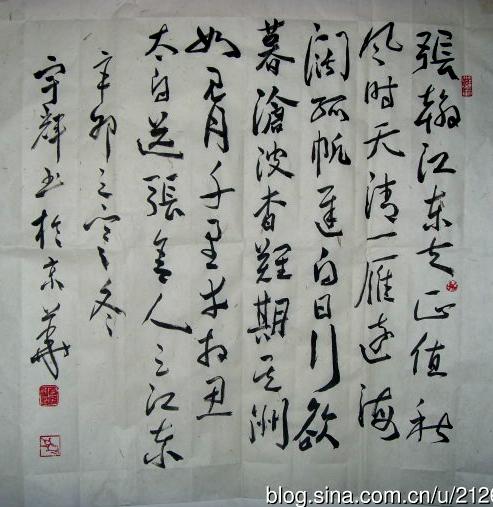 張翰江东去正值秋
风时天清一雁远海
阔孤帆遲白日行欲
暮滄波杳難期吴洲
如见月千里幸相思
太白送張舍人之江东
辛卯之寒冬
宇輝书於京華
blog.sina.com.cn/u/2126